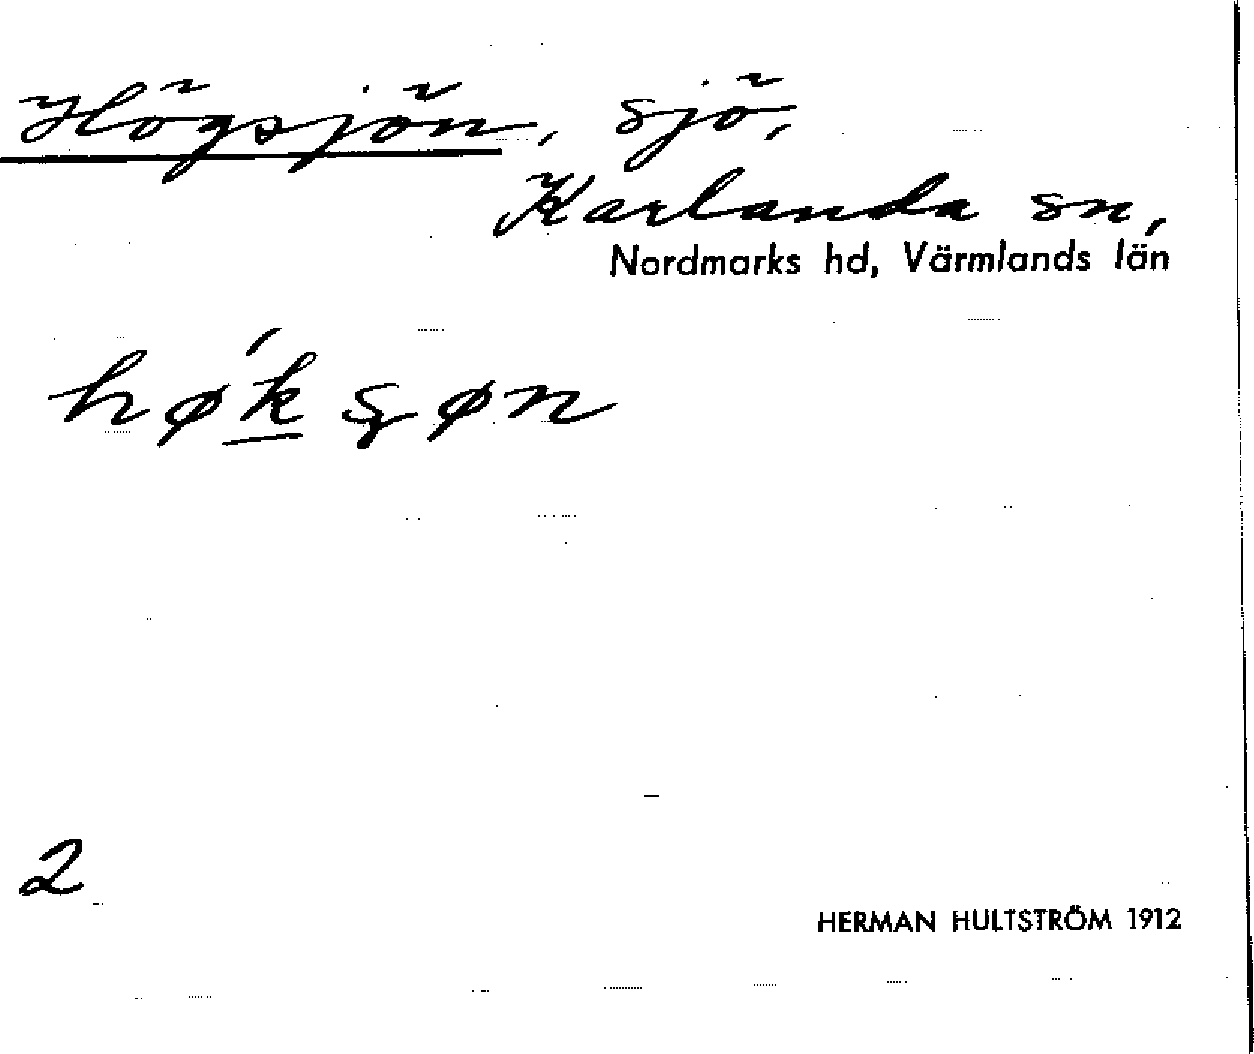 Högsjön, sjö,
Karlanda sn,
Nordmarks hd, Värmlands län
høḱşøn
2
HERMAN HULTSTRÖM 1912